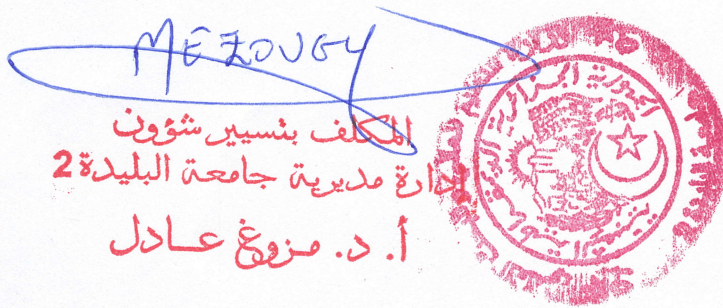 MEZOUGY
المكلف بتسيير شؤون
إدارة مديرية جامعة البليدة 2
أ. د. مزوغ عادل
الجمهورية الجزائرية الديمقراطية الشعبية